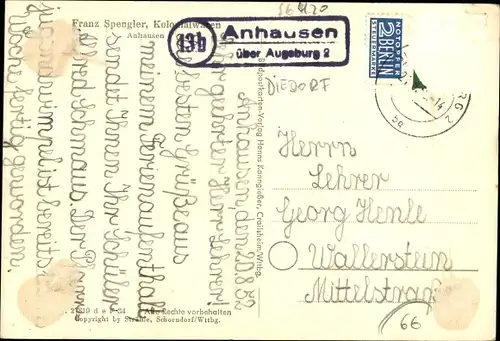 56420
Franz Spengler, Kolonialwaren
Anhausen
13b
Anhausen
über Augsburg 2
DIEDORF
NOTOPFER
2 BERLIN
STEUERMARKE
Anhausen, den 20.8.52
Sehr geehrter Herr Lehrer!
Die besten Grüße aus
meinem Ferienaufenthalt
sendet Ihnen Ihr Schüler
Alfred Schmaus. Der
ist bereits
fertig geworden.
Herrn
Lehrer
Georg Henle
Wallerstein
Mittelstraße
66
Bildpostkarten-Verlag Hanns Kanngießer, Crailsheim/Wttbg.
Alle Rechte vorbehalten
Copyright by Strähle, Schorndorf/Wttbg.